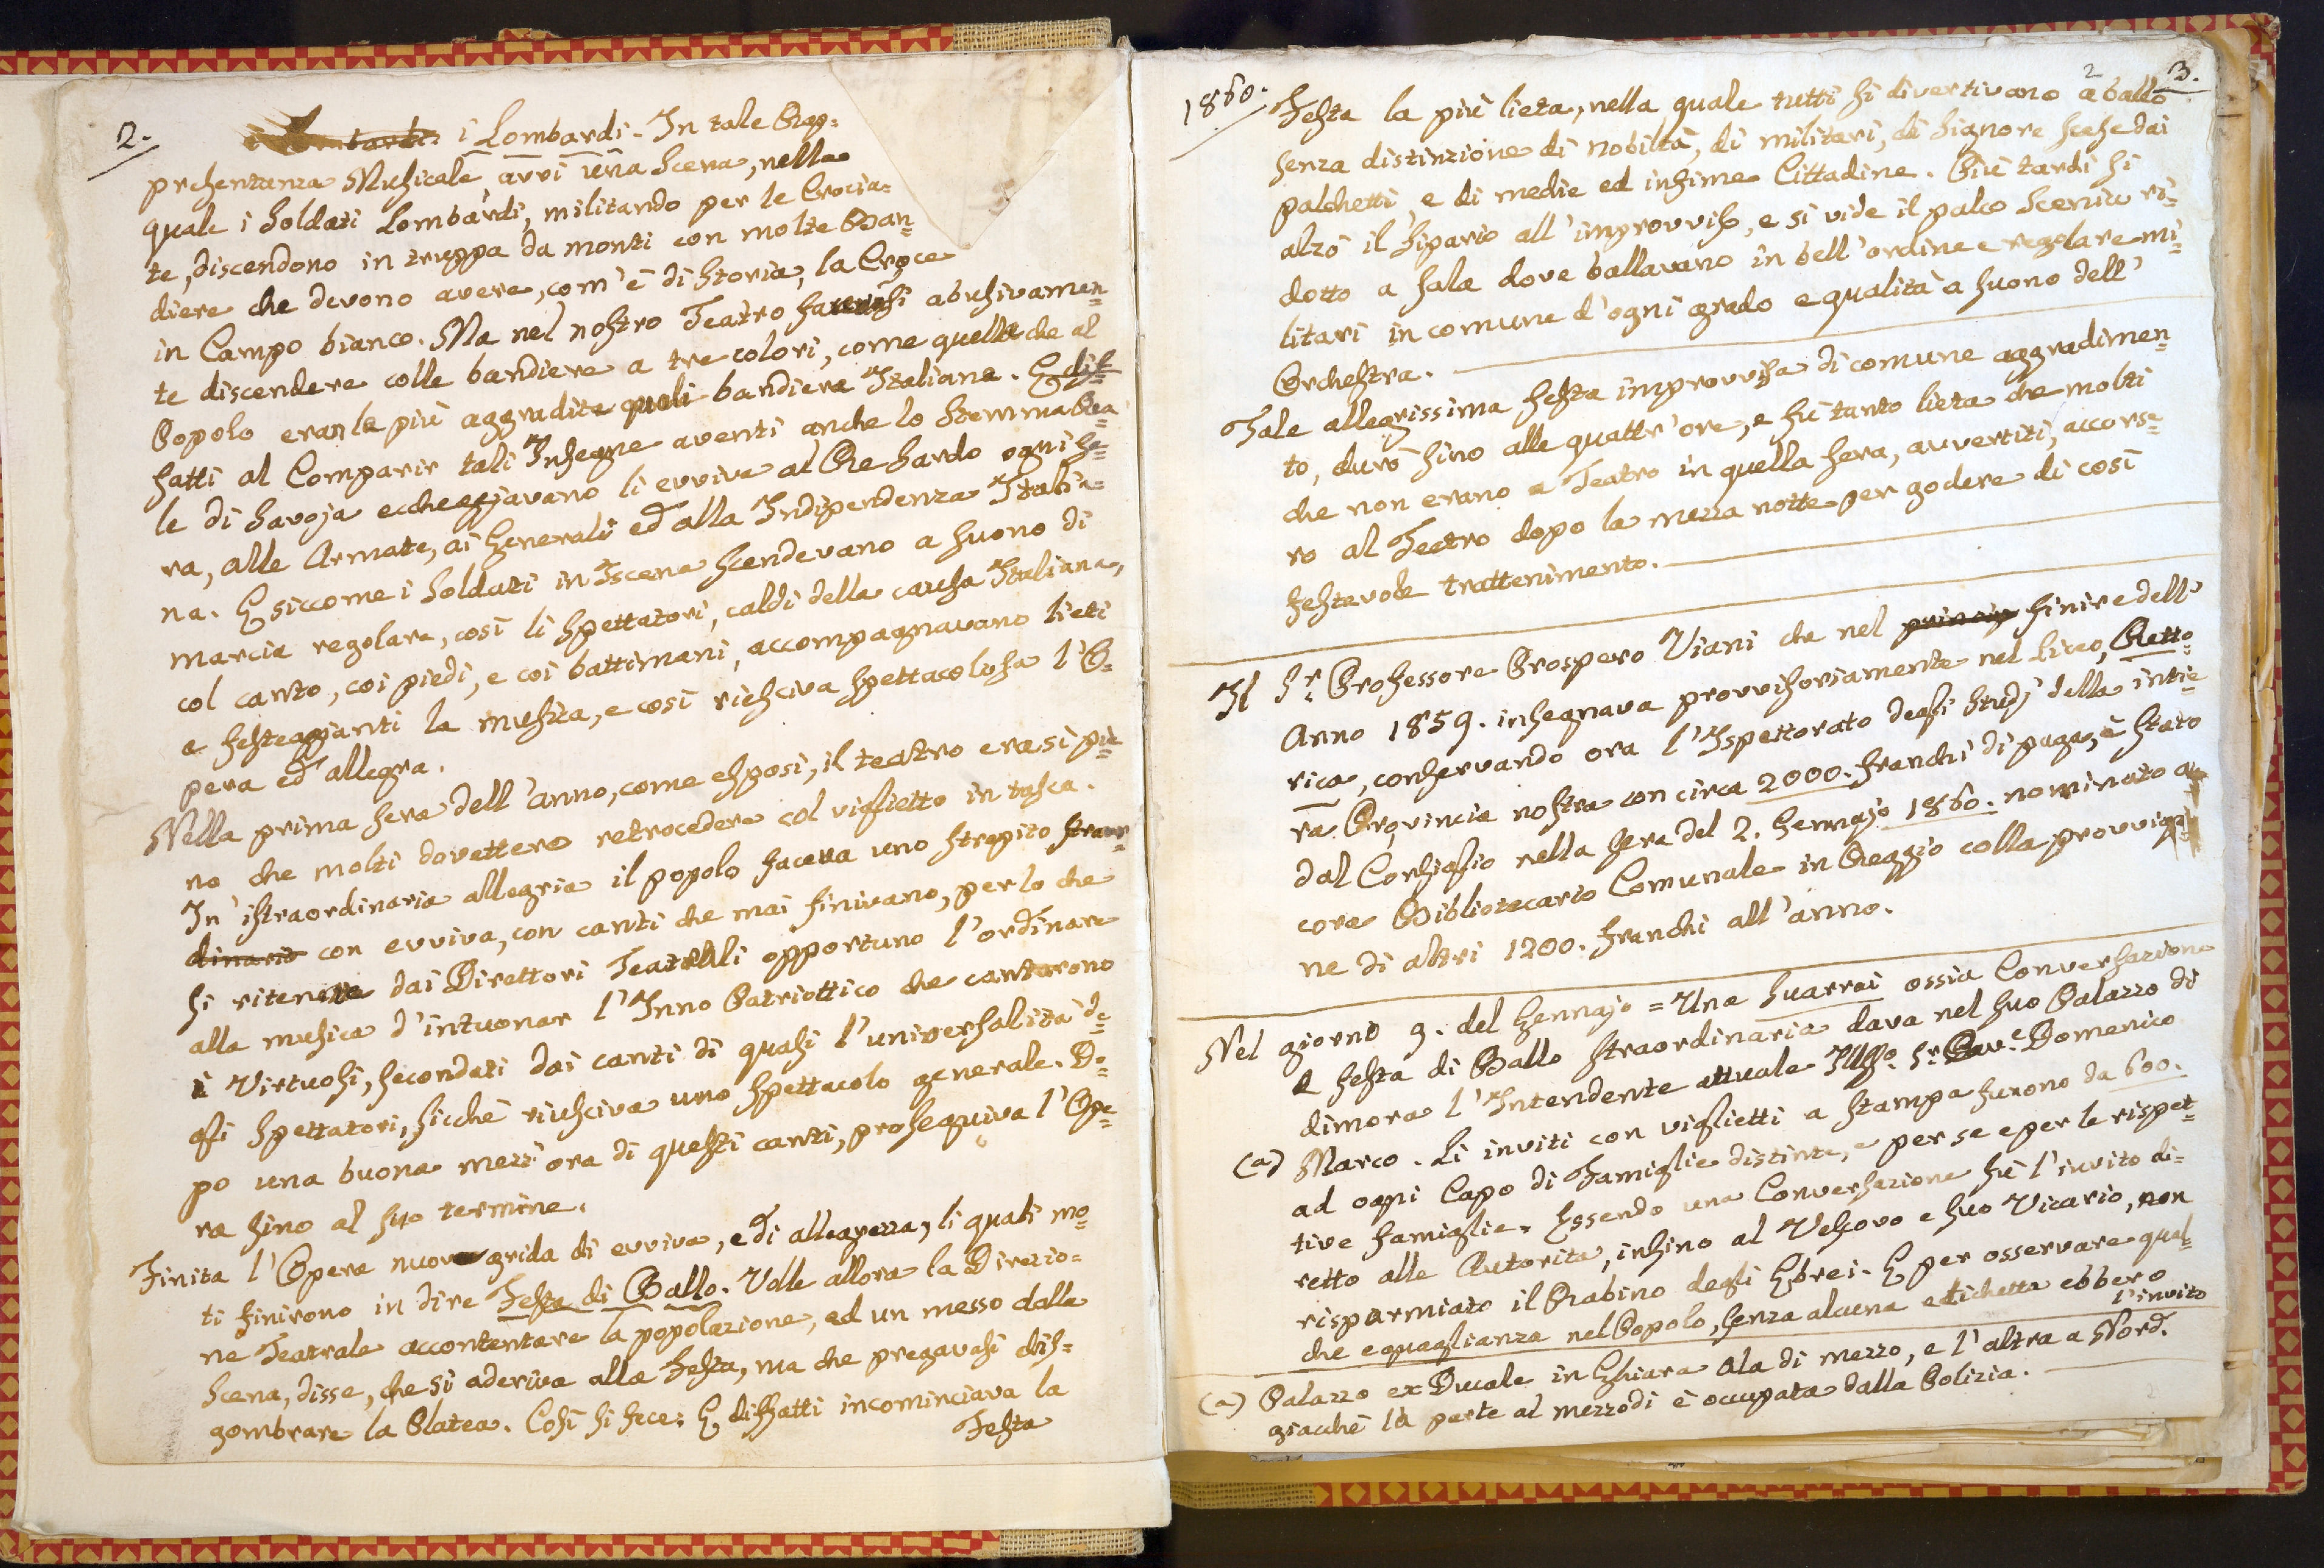 2.
i Lombardi. In tale Rap=
presentanza Musicale avvi una Scena, nella
quale i Soldati Lombardi, militando per le Crocia=
te, discendono in truppa da monti con molte Ban=
diere che devono avere, com'è di Storia, la Croce
in Campo bianco. Ma nel nostro Teatro facevansi abusivamen=
te discendere colle bandiere a tre colori, come quelle che al
Popolo eran le più aggradite quali bandiera Italiana. E dif=
fatti al Comparir tali Insegne aventi anche lo Stemma Rea=
le di Savoja eccheggiavano li evviva al Re Sardo ogni se=
ra, alle Armate, ai Generali ed alla Indipendenza Italia=
na. E siccome i Soldati in Iscena scendevano a suono di
marcia regolare, così li Spettatori, caldi della causa Italiana,
col canto, coi piedi, e coi battimani, accompagnavano lieti
e festeggianti la musica, e così riesciva spettacolosa l'O=
pera ed allegra.
Nella prima sera dell'anno, come esposi, il teatro era sì pie=
no, che molti dovettero retrocedere col viglietto in tasca.
In istraordinaria allegria il popolo faceva uno strepito straor=
dinario con evviva, con canti che mai finivano, per lo che
si ritenne dai Direttori Teatrali opportuno l'ordinare
alla musica d'intuonar l'Inno Patriottico che cantarono
i Virtuosi, secondati dai canti di quasi l'universalità de=
gli Spettatori, sicchè riusciva uno spettacolo generale. Do=
po una buona mezz'ora di questi canti, proseguiva l'Ope=
ra fino al suo termine.
Finita l'Opera nuove grida di evviva, e di allegrezza, li quali mo=
ti finirono in dire Festa di Ballo. Volle allora la Direzio=
ne Teatrale accontentare la popolazione, ed un messo dalla
Scena, disse, che si aderiva alla Festa, ma che pregavasi dis=
gombrare la Platea. Così si fece. E diffatti incominciava la
Festa
1860.
2
3.
Festa la più lieta, nella quale tutti si divertivano a ballo
senza distinzione di nobiltà, di militari, di Signore scese dai
palchetti e di medie ed infime Cittadine. Più tardi si
alzò il Sipario all'improvviso, e si vide il palco Scenico ri=
dotto a sala dove ballavano in bell'ordine e regolare mi=
litari in comune d'ogni grado e qualità a suono dell'
Orchestra.
Tale allegrissima festa improvvisa di comune aggradimen=
to, durò sino alle quattr'ore, e fù tanto lieta che molti
che non erano a Teatro in quella sera, avvertiti, accorse=
ro al Teatro dopo la mezza notte per godere di così
festevole trattenimento.
Il Sr. Professore Prospero Viani che nel princip finire dell'
Anno 1859. insegnava provvisoriamente nel Liceo, Retto=
rica, conservando ora l'Ispettorato degli Studj della intie=
ra Provincia nostra con circa 2000. franchi di paga, è stato
dal Consiglio nella sera del 2. Gennajo 1860. nominato an
cora Bibliotecario Comunale in Reggio colla provvigio
ne di altri 1200. franchi all'anno.
Nel giorno 9. del Gennajo = Una Suarrai ossia Conversazione
e festa di Ballo straordinaria dava nel suo Palazzo di
dimora l'Intendente attuale Illmo. Sr. Cave. Domenico
(a) Marco. Li inviti con viglietti a stampa furono da 600.
ad ogni Capo di Famiglie distinte, e per se e per le rispet=
tive famiglie. Essendo una Conversazione fù l'invito di=
retto alle Autorità, insino al Vescovo e suo Vicario, non
risparmiato il Rabino degli Ebrei. E per osservare qual=
che equaglianza nel Popolo, senza alcuna etichetta ebbero
l'invito
(a) Palazzo ex Ducale in Ghiara Ala di mezzo, e l'altra a Nord.
giacchè la parte al mezzodi è occupata dalla Polizia.